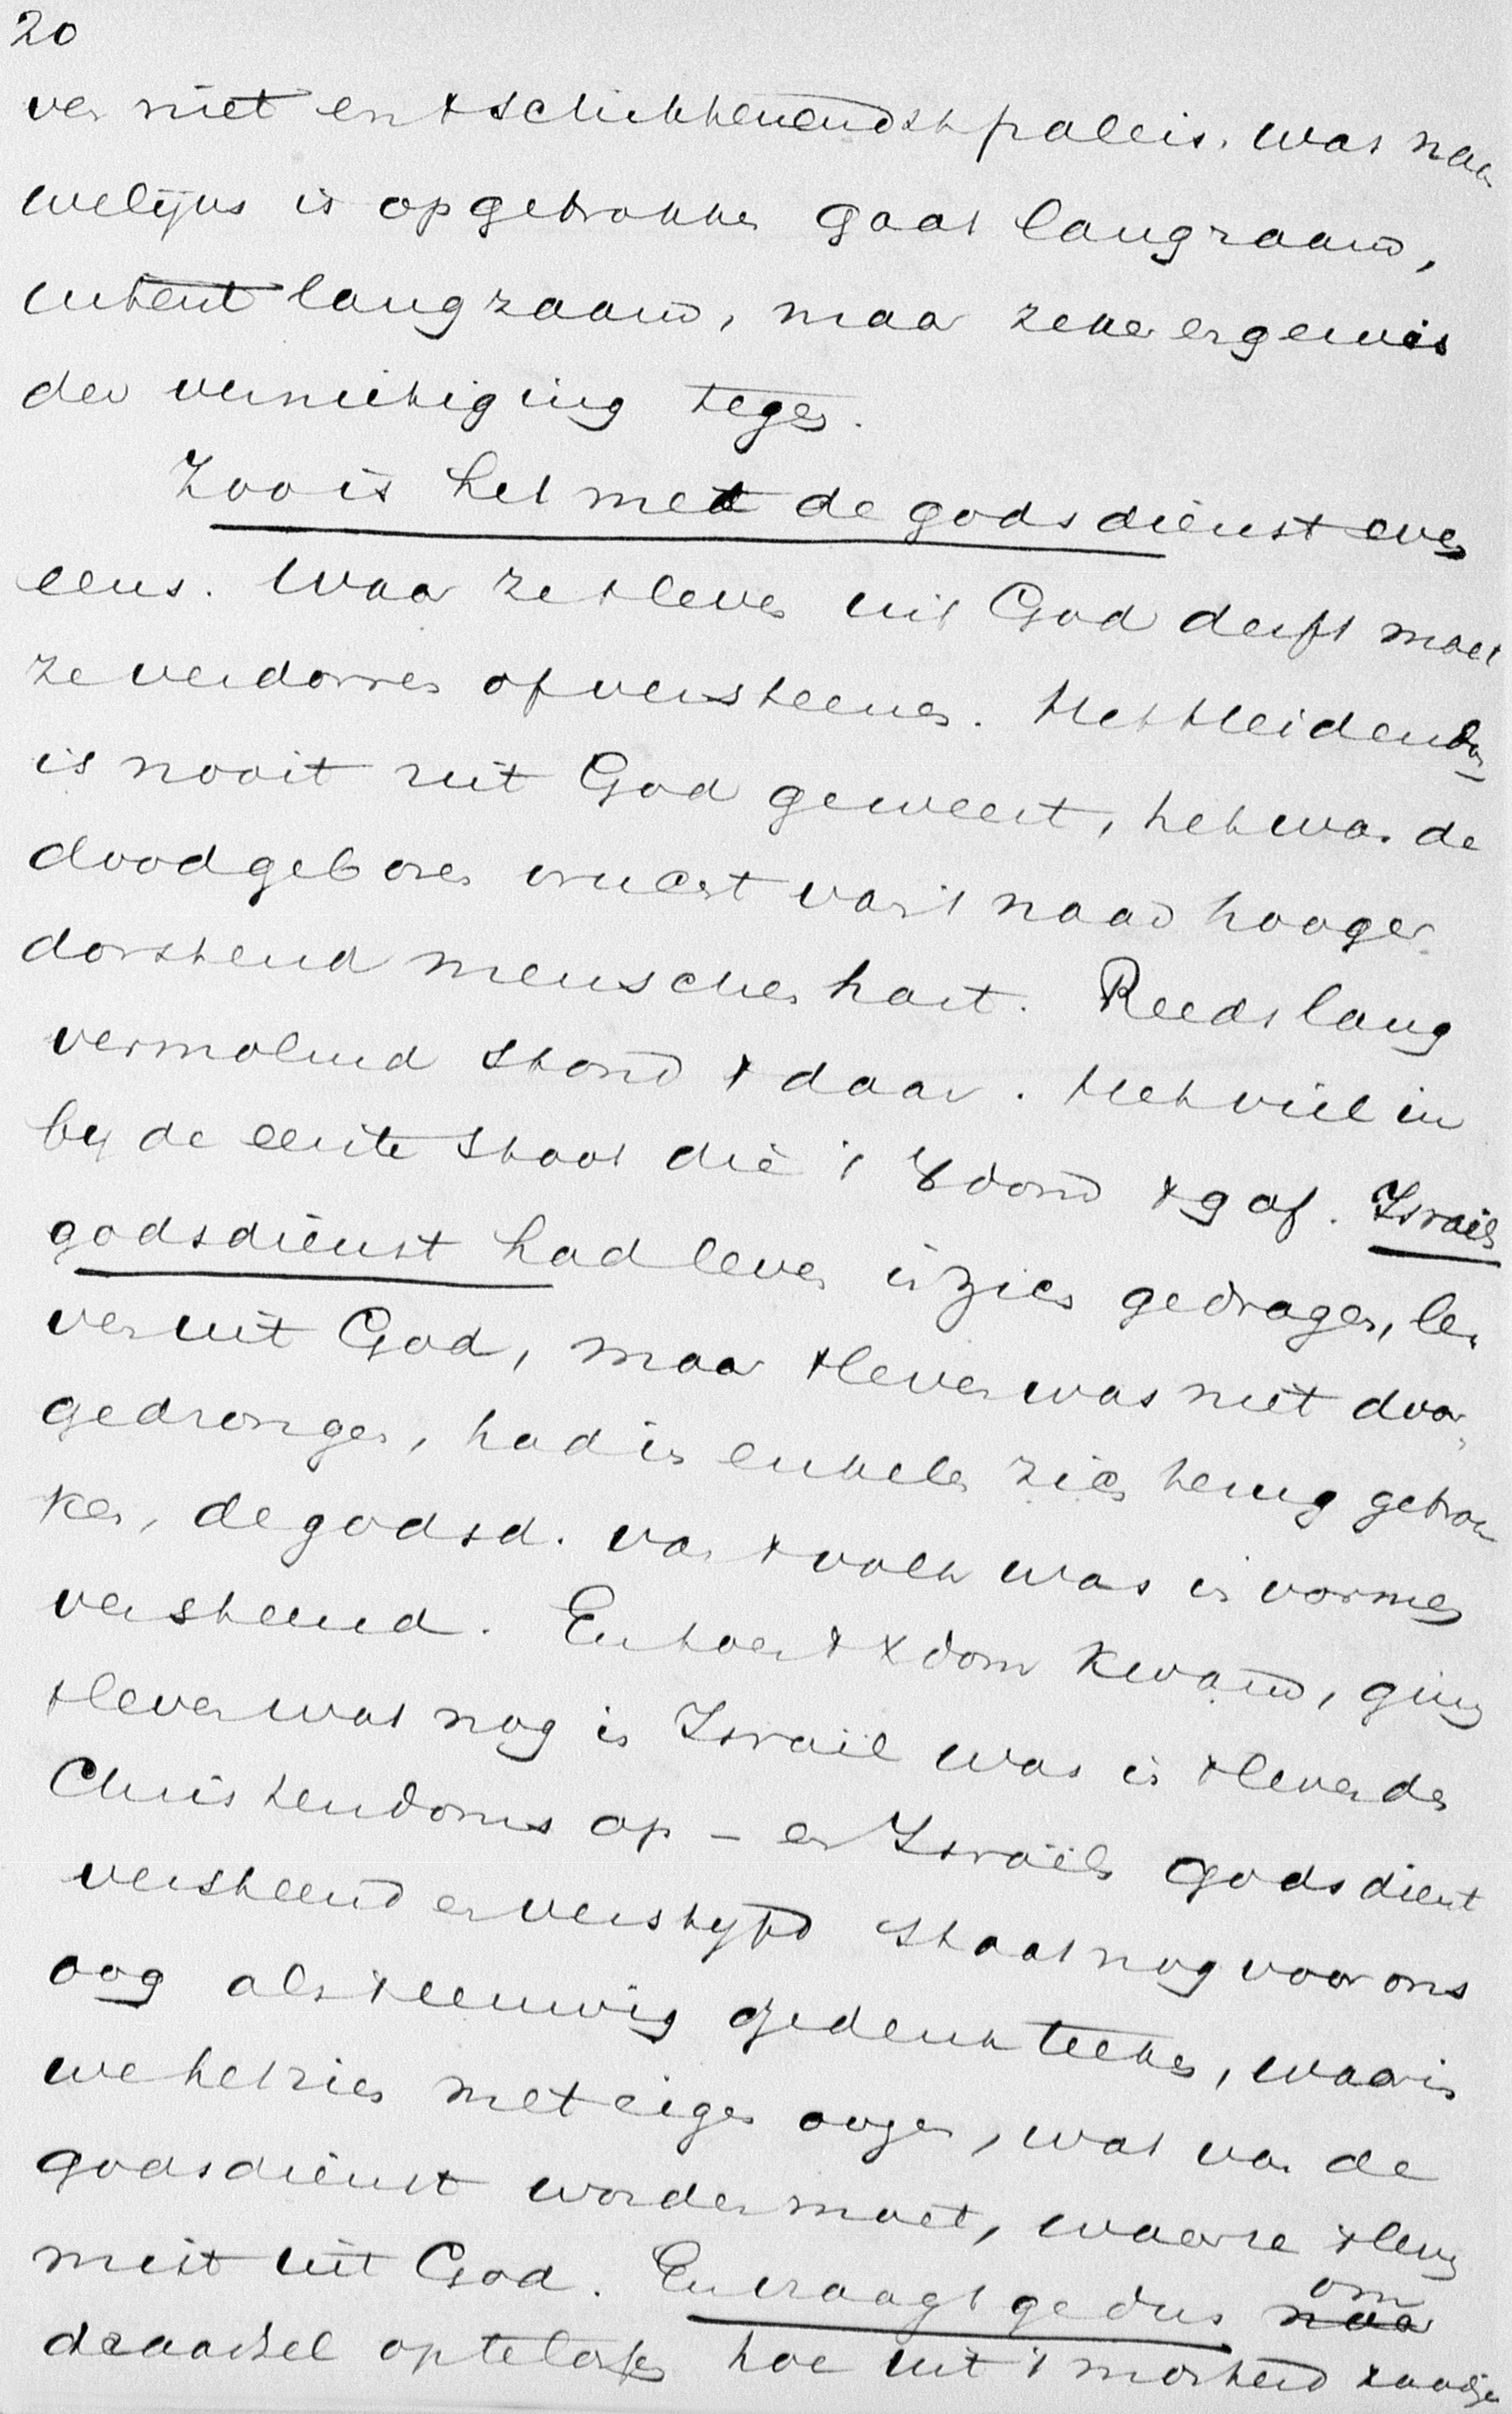 20
ver niet en 't schitterendst paleis, wat nau
welijks is opgetrokken gaat langzaam,
uiterst langzaam, maar zeker en gewis
der vernietiging tegen.
Zoo is het met de godsdienst even
eens. Waar ze 't leven uit God derft moet
ze verdorren of versteenen. Het Heidendom
is nooit uit God geweest, het was de
doodgeboren vrucht van 't naar hooger
dorstend menschenhart. Reeds lang
vermolmd stond 't daar. Het viel in
by de eerste stoot die 't Xdom 't gaf. Israëls
godsdienst had leven in zich gedragen, le
ven uit God, maar 't leven was niet door
gedrongen, had in enkelen zich terug getrok
ken, de godsd. van 't volk was in vormen
versteend. En toen 't Xdom kwam, ging
't leven wat nog in Israël was in 't leven des
Christendoms op – en Israëls godsdienst
versteend en verstyfd staat nog voor ons
oog als 't eeuwig gedenkteeken, waarin
we het zien met eigen oogen, wat van de
godsdienst worden moet, waar ze 't leven
mist uit God. En vraagt ge dus om naar
draadsel op te lossen hoe uit 't mosterd zaadje